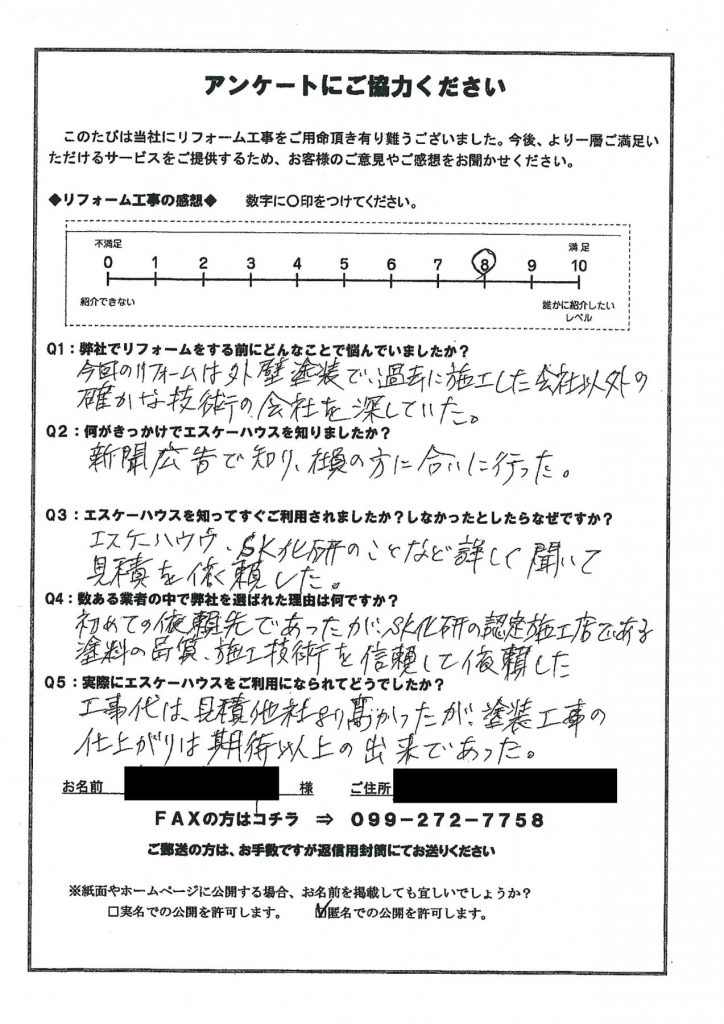 アンケートにご協力ください
このたびは当社にリフォーム工事をご用命頂き有り難うございました。今後、より一層ご満足い
ただけるサービスをご提供するため、お客様のご意見やご感想をお聞かせください。
◆リフォーム工事の感想◆　数字に〇印をつけてください。
不満足　満足
0 1 2 3 4 5 6 7 8 9 10
紹介できない　誰かに紹介したい
レベル
Q1：弊社でリフォームをする前にどんなことで悩んでいましたか？
今回のリフォームは外壁塗装で、過去に施工した会社以外の
確かな技術の会社を深していた。
Q2：何がきっかけでエスケーハウスを知りましたか？
新聞広告で知り、社員の方に会いに行った。
Q3：エスケーハウスを知ってすぐご利用されましたか？しなかったとしたらなぜですか？
エスケーハウウ、SK化研のことなど詳しく聞いて
見積を依頼した。
Q4：数ある業者の中で弊社を選ばれた理由は何ですか？
初めての依頼先であったが、SK化研の認定施工店である
塗料の品質、施工技術を信頼して依頼した
Q5：実際にエスケーハウスをご利用になられてどうでしたか？
工事代は、見積他社より高かったが、塗装工事の
仕上がりは期待以上の出来であった。
お名前　様　ご住所
ＦＡＸの方はコチラ　⇒　０９９－２７２－７７５８
ご郵送の方は、お手数ですが返信用封筒にてお送りください
※紙面やホームページに公開する場合、お名前を掲載しても宜しいでしょうか？
□実名での公開を許可します。　☑匿名での公開を許可します。